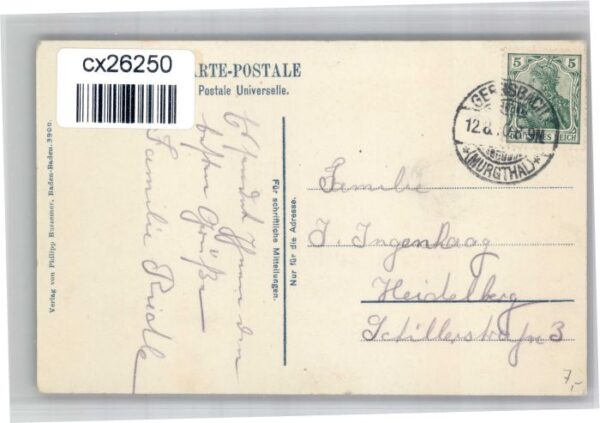 cx26250
ARTE-POSTALE
Postale Universelle.
Es sendet Ihnen den
besten Grüße
Familie Riedle
Für schriftliche Mitteilungen.
Nur für die Adresse.
Verlag von Philipp Bussemer, Baden-Baden. 3900.
5 5
GERNSBACH
12.8. 8-9N
*(MURGTHAL)*
DEUTSCHES REICH
Familie
J. Ingenhaag
Heidelberg
Schillerstraße 3
7,-